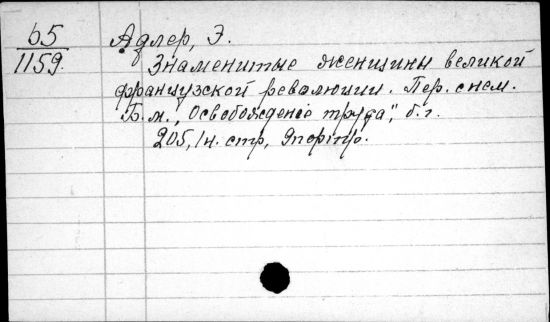 65 Адлер, Э.
1159. Знаменитые женщины великой
французской революции. Пер. с нем.
Б.м., "Освобожденiе труда", б.г.
205, 1н. стр, 9 портр.